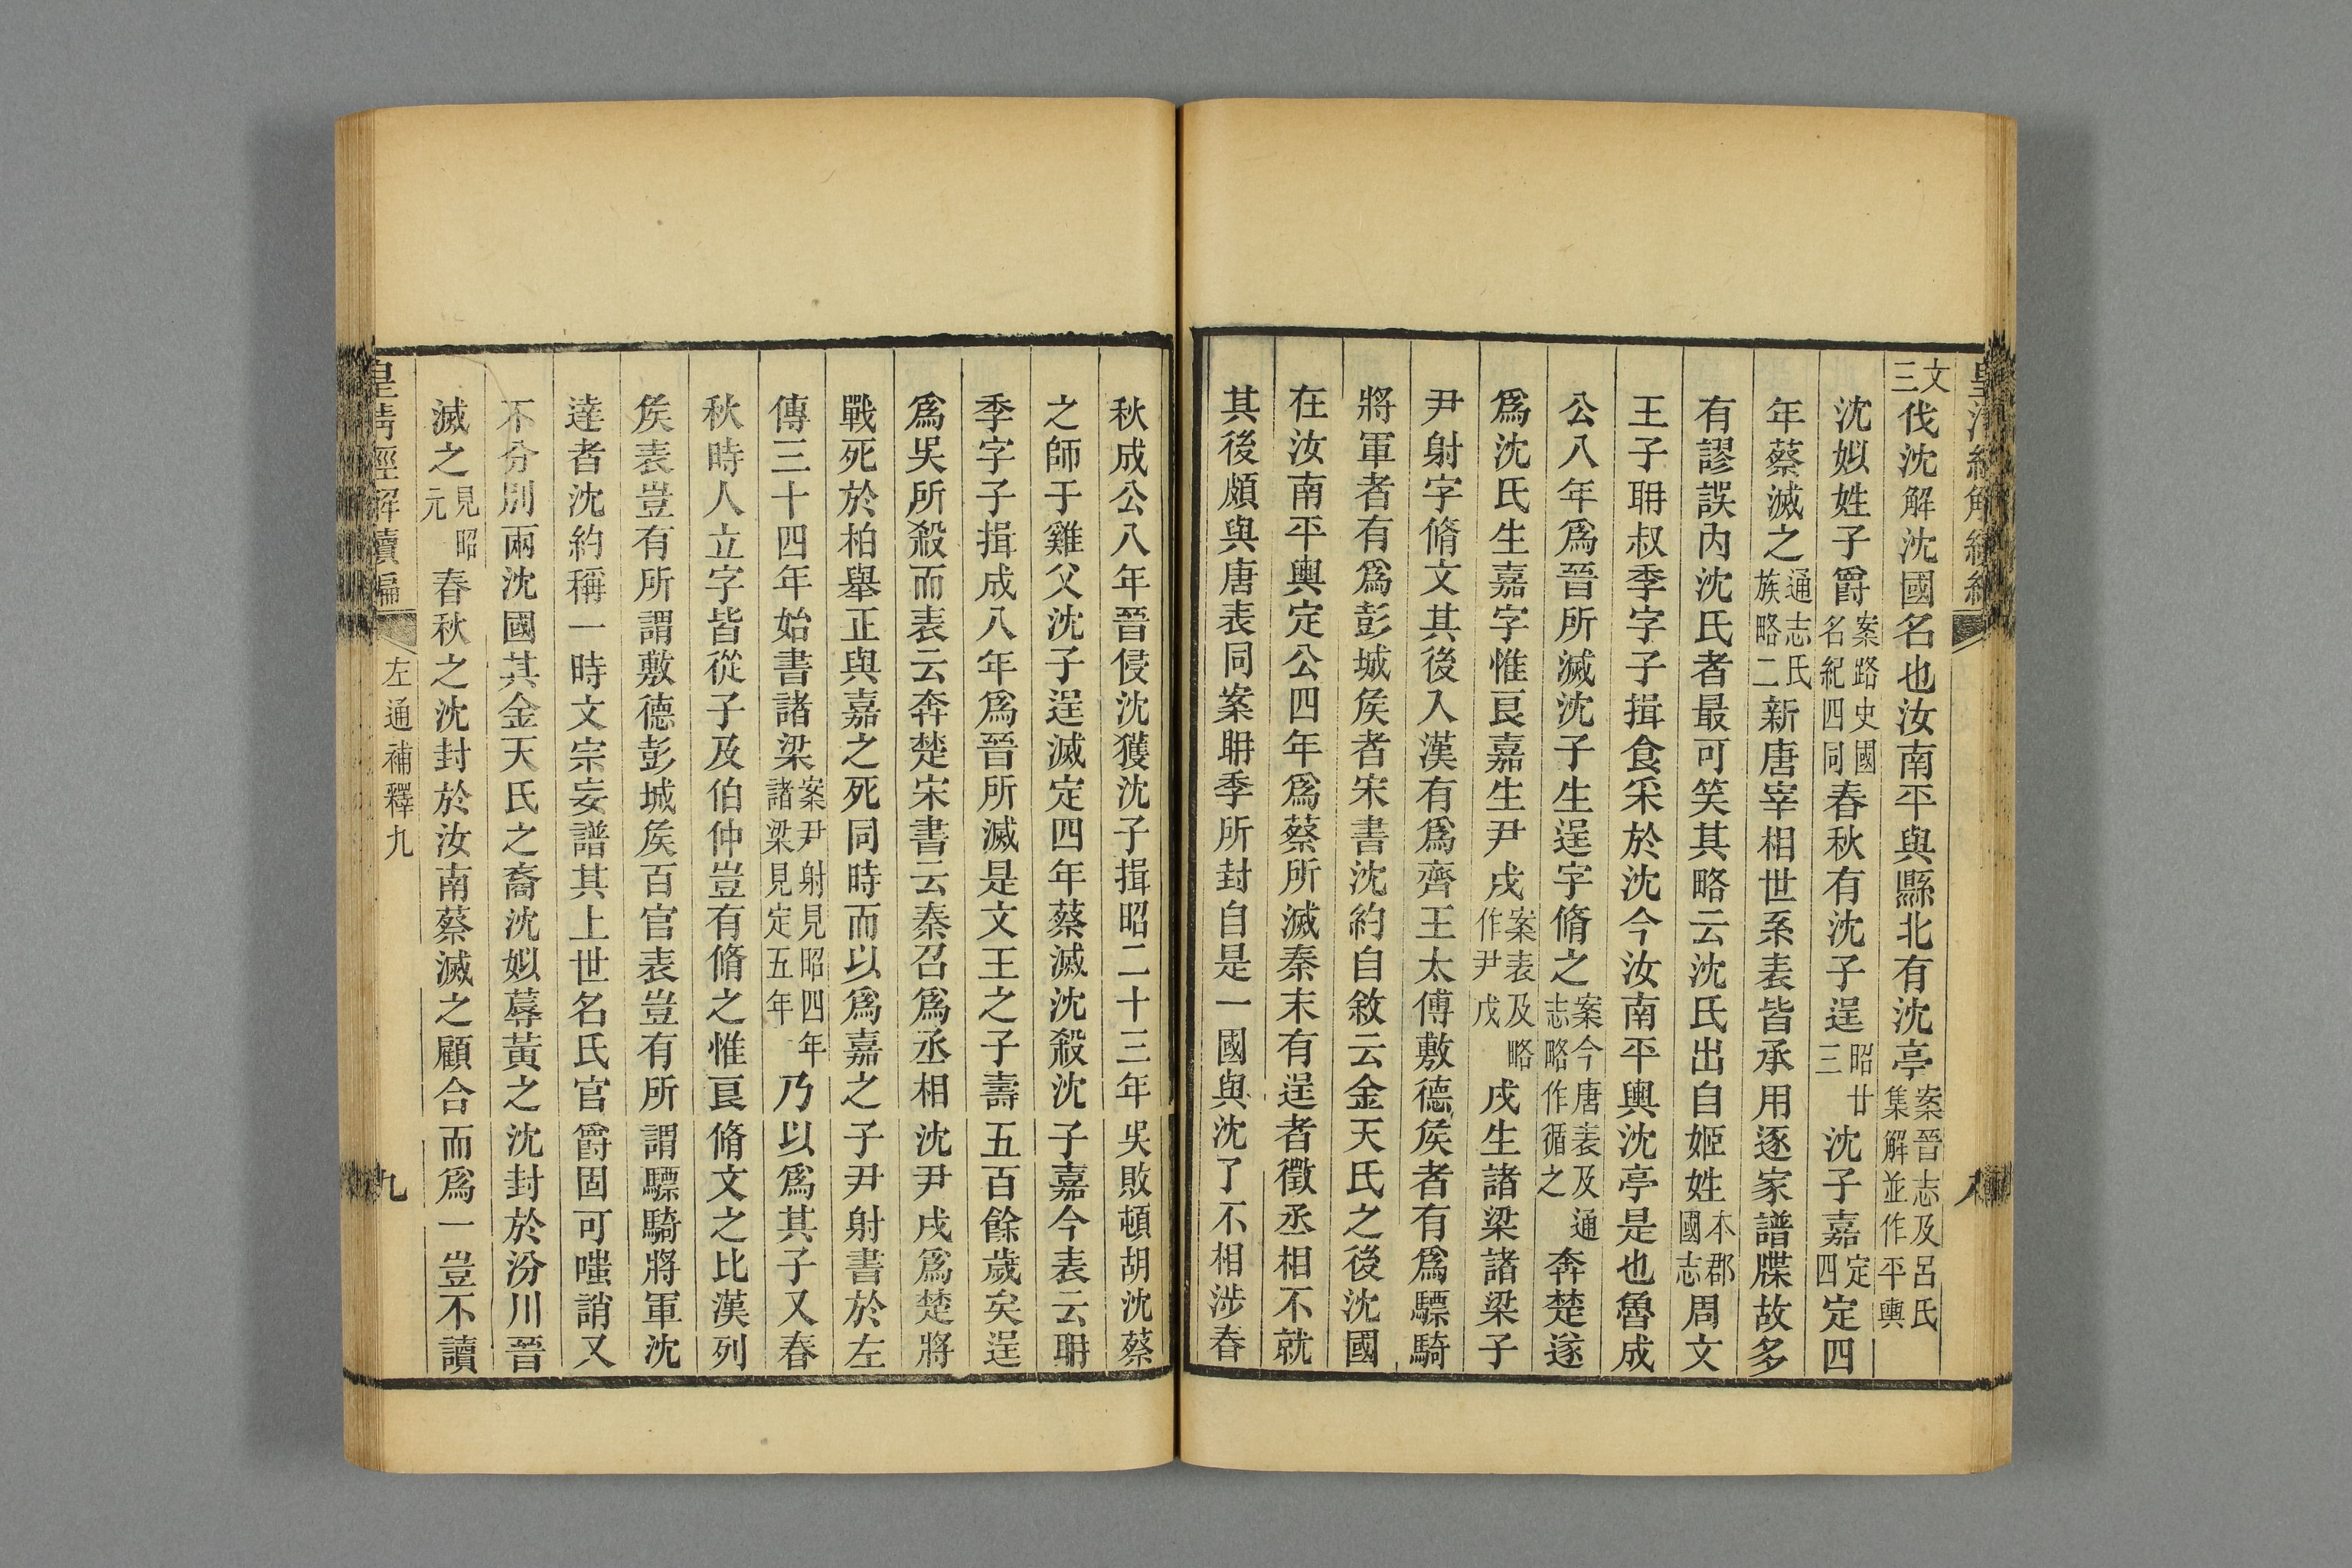 皇清經解續編
八
文三伐沈解沈國名也汝南平與縣北有沈亭案晉志及呂氏集解並作平輿
沈姒姓子爵案路史國名紀四同春秋有沈子逞昭廿三沈子嘉定四定四
年蔡滅之通志氏族略二新唐宰相世系表皆承用逐家譜牒故多
有謬誤內沈氏者最可笑其略云沈氏出自姬姓本郡國志周文
王子聃叔季字子揖食采於沈今汝南平輿沈亭是也魯成
公八年爲晉所滅沈子生逞字脩之案今唐表及通志略作循之奔楚遂
爲沈氏生嘉字惟良嘉生尹戌案表及略作尹戊戌生諸梁諸梁子
尹射字脩文其後入漢有爲齊王太傅敷德矦者有爲驃騎
將軍者有爲彭城矦者宋書沈約自敘云金天氏之後沈國
在汝南平輿定公四年爲蔡所滅秦末有逞者徵丞相不就
其後頗與唐表同案聃季所封自是一國與沈了不相涉春
秋成公八年晉侵沈獲沈子揖昭二十三年吳敗頓胡沈蔡
之師于雞父沈子逞滅定四年蔡滅沈殺沈子嘉今表云聃
季字子揖成八年爲晉所滅是文王之子壽五百餘歲矣逞
爲吳所殺而表云奔楚宋書云秦召爲丞相沈尹戌爲楚將
戰死於柏舉正與嘉之死同時而以爲嘉之子尹射書於左
傳三十四年始書諸梁案尹射見昭四年諸梁見定五年乃以爲其子又春
秋時人立字皆從子及伯仲豈有脩之惟良脩文之比漢列
矦表豈有所謂敷德彭城矦百官表豈有所謂驃騎將軍沈
達者沈約稱一時文宗妄譜其上世名氏官爵固可嗤誚又
不分別兩沈國其金天氏之裔沈姒蓐黃之沈封於汾川晉
滅之見昭元春秋之沈封於汝南蔡滅之顧合而爲一豈不讀
皇清經解續編
左通補釋九
九